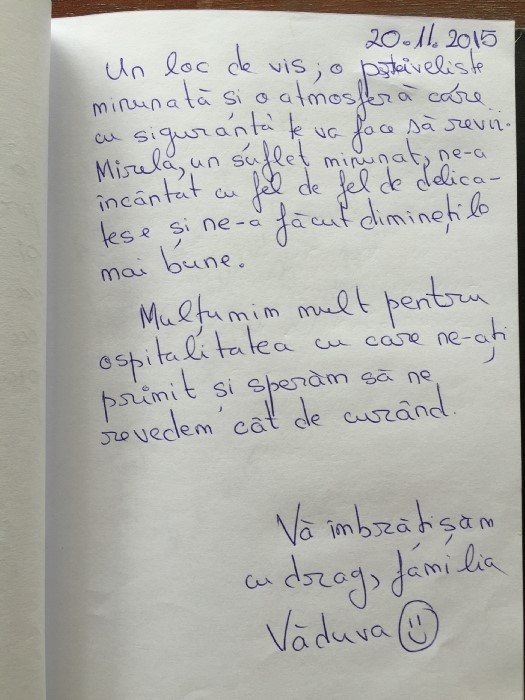 20.11.2015
Un loc de vis, o priveliste
minunată și o atmosferă care
cu siguranță te va face să revii.
Mirela, un suflet minunat, ne-a
incântat cu fel de fel de delica-
tese și ne-a făcut diminețile
mai bune.
Mulțumim mult pentru
ospitalitatea cu care ne-ați
primit și sperăm să ne
revedem cât de curând.
Vă îmbrățișăm
cu drag, familia
Văduva ☺